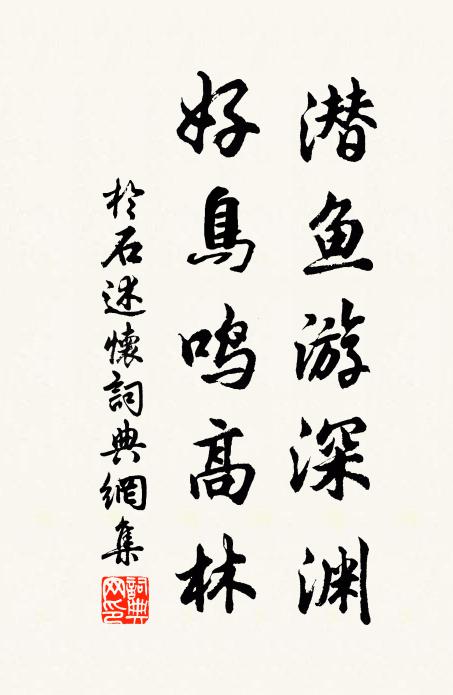 潜鱼游深渊
好鳥鸣高林
於石述懷詞典網集
詞典网印